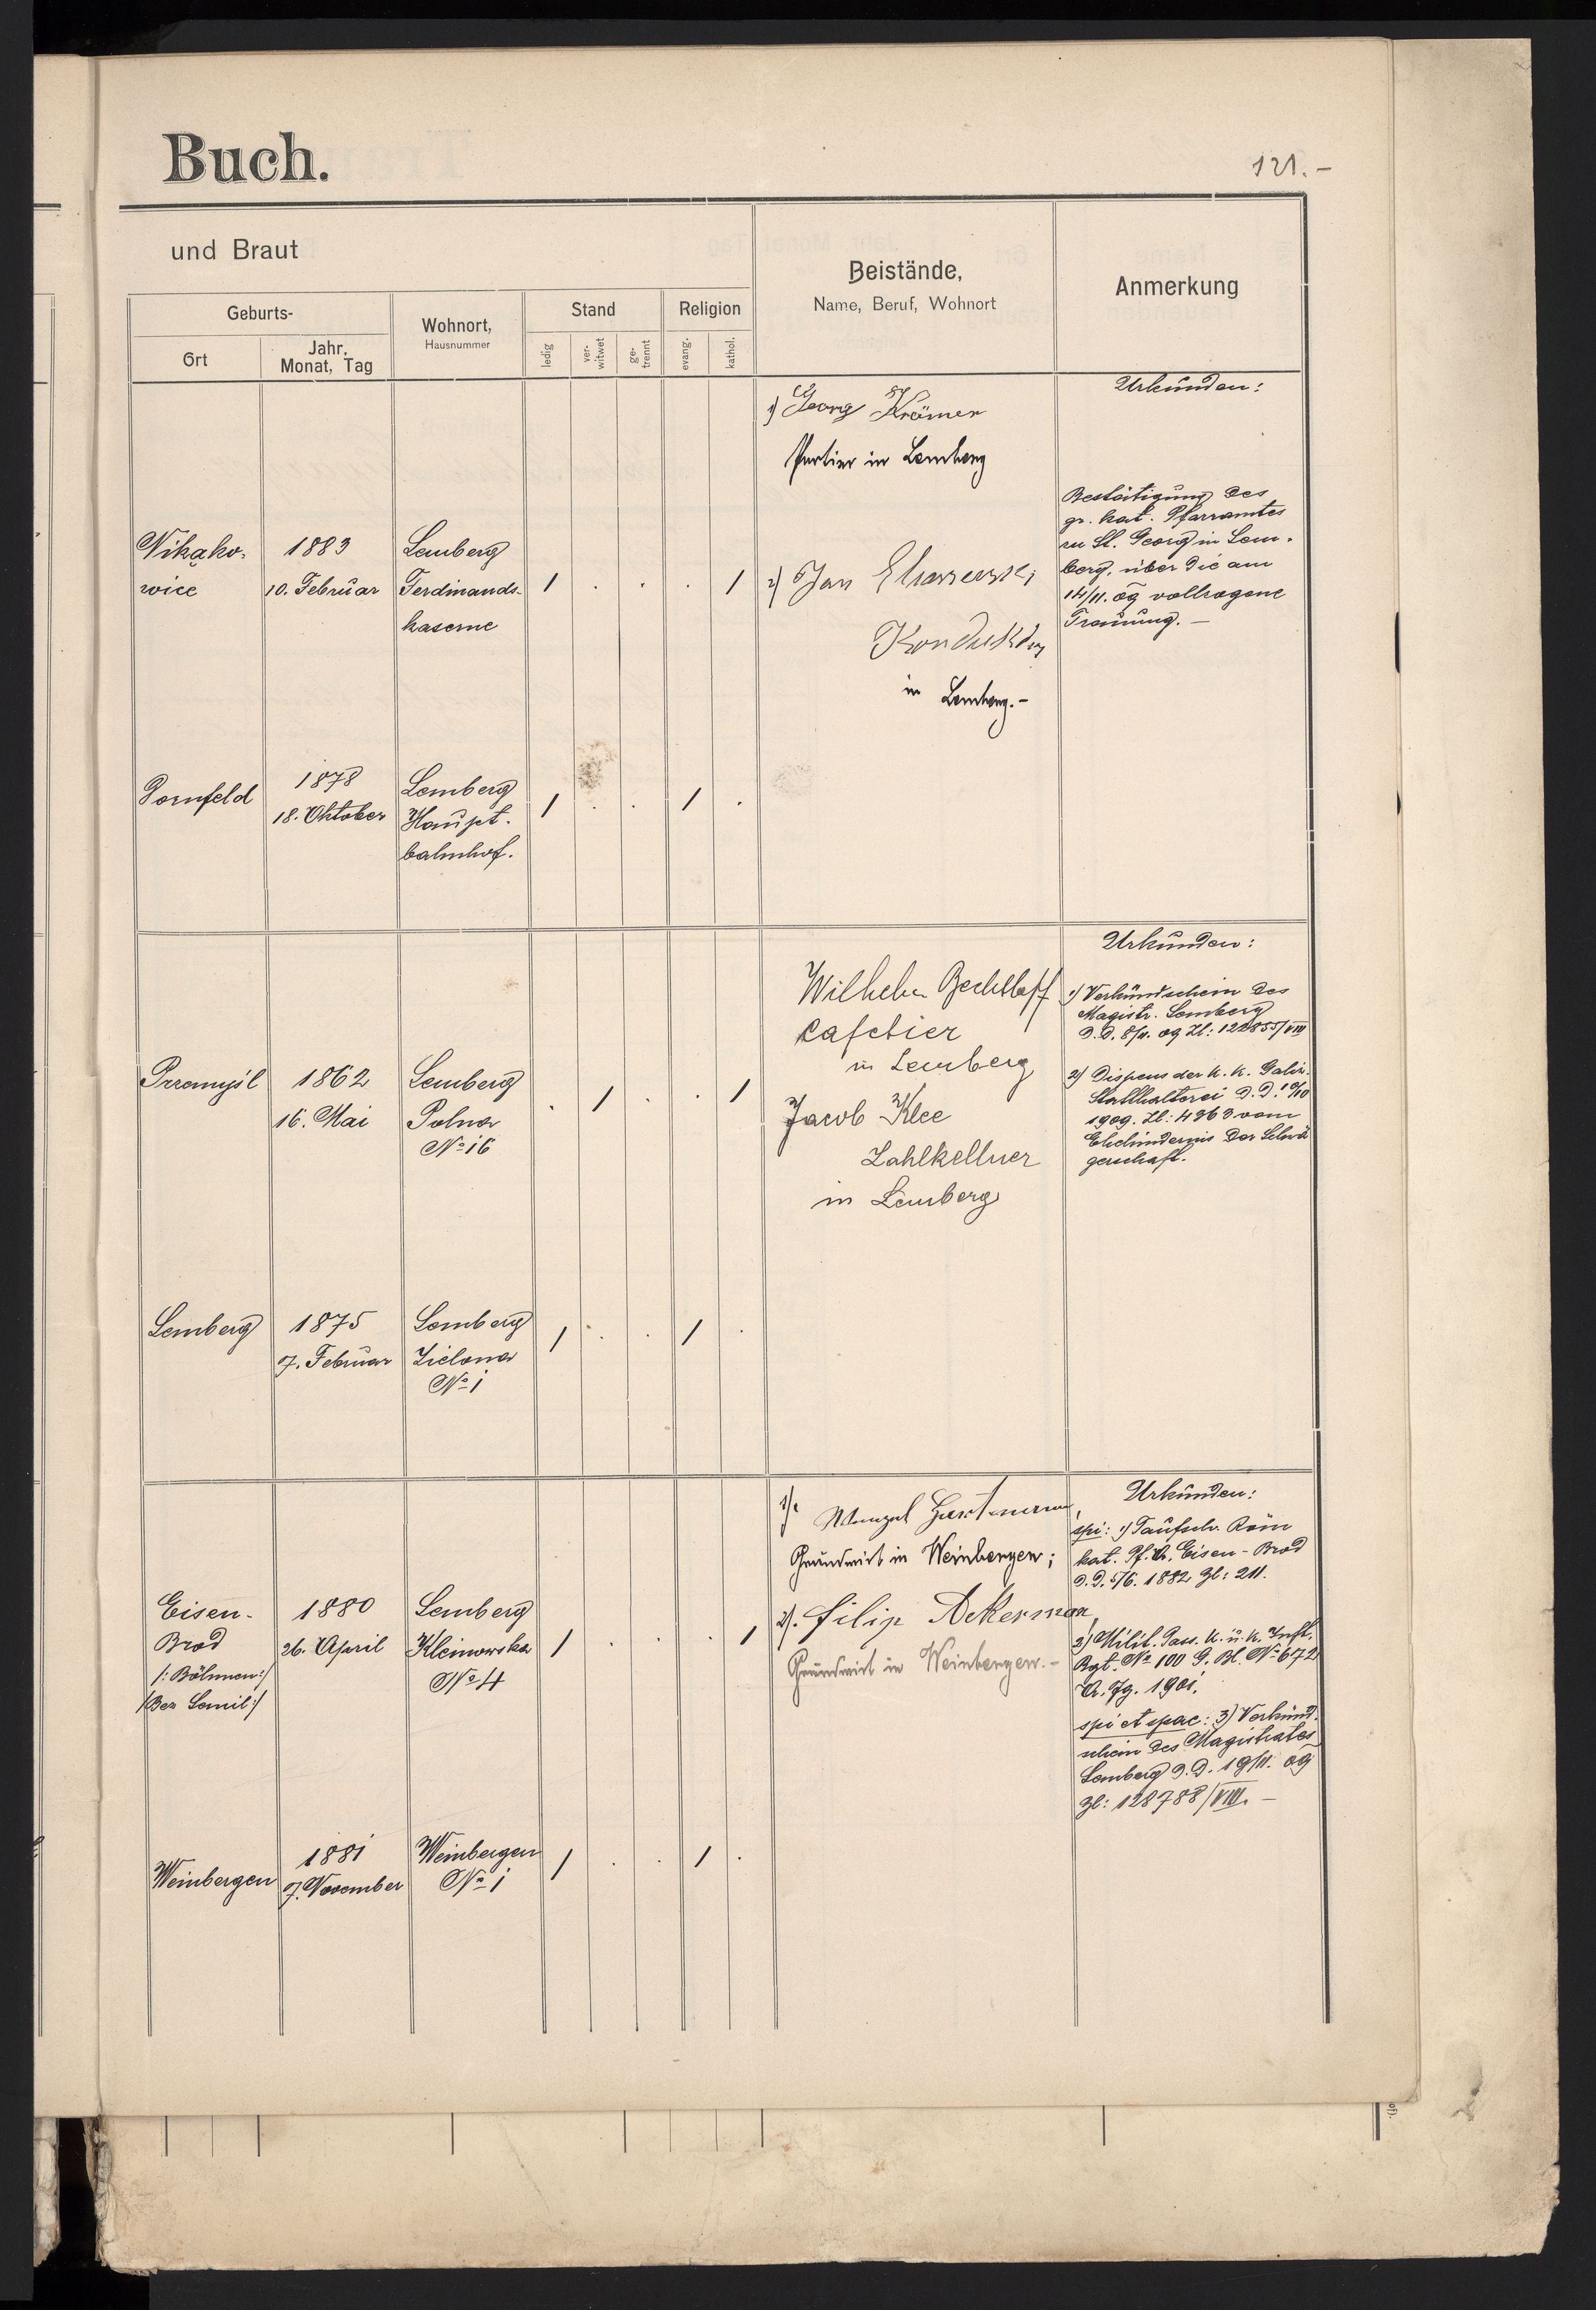 Buch.
121.-
und Braut
Geburts-
Ort
Jahr,
Monat, Tag
Wohnort,
Hausnummer
Stand
ledig
ver-
witwet
ge-
trennt
Religion
evang.
kathol.
Beistände,
Name, Beruf, Wohnort
Anmerkung
Nikąko-
wice
1883
10. Februar
Lemberg
Ferdinands-
kaserne
1 . . . 1
1) Georg Krämer
Portier in Lemberg
2) Jan
Konduktor
in Lemberg.-
Urkunden:
Bestätigung des
gr. kat. Pfarramtes
zu St. Georg in Lem-
berg, über die am
14/11. og vollzogene
Trauung. —
Dornfeld
1878
18. Oktober
Lemberg
Haupt-
bahnhof.
1 . . 1 .
Przemyśl
1862
16. Mai
Lemberg
Polna
No 16
. 1 . . 1
Wilhelm Bechtloff
Cafetier
in Lemberg
Jacob Klee
Zahlkellner
in Lemberg
Urkunden:
1) Verkündschein des
Magistr. Lemberg
d.d. 8/11. og Zl: 122855/VIII
2) Dispens der k. k. Galiz.
Statthalterei d.d.
1909. Zl: 4363 vom
Ehehindernis der Schwä
gerschaft.
Lemberg
1875
7. Februar
Lemberg
Zielona
No 1
1 . . 1 .
Eisen-
Brod
/: Böhmen:/
/Bez Semil:/
1880
26. April
Lemberg
Kleinowska
No 4
1 . . . 1
1). Wenzel Hartmann,
Grundwirt in Weinbergen;
2). Filip Ackerman,
Grundwirt in Weinbergen.-
Urkunden:
spi: 1) Taufsch. Röm
kat. Pf. A. Eisen-Brod
d.d. 5/6. 1882 Zl: 211.
2) Milit. Pass. k. u. k. Inft.
Rgt. No 100 G. Bl. No 672
A. Jg. 1901.
spi et spae: 3) Verkünd-
schein des Magistrates
Lemberg d.d. 19/11. og
Zl: 128788/VIII. —
Weinbergen
1881
7. November
Weinbergen
No 1
1 . . 1 .